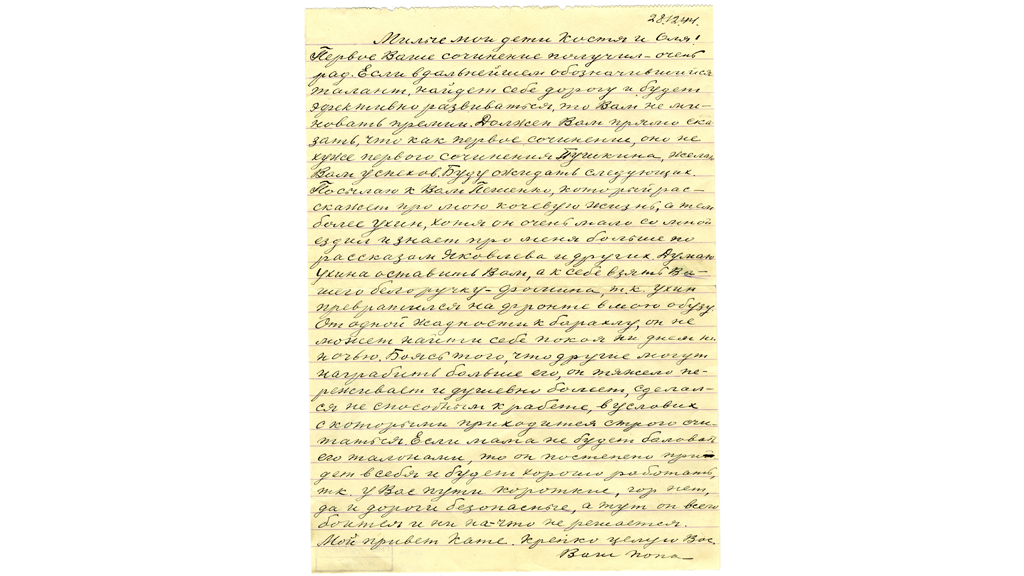 28.12.44.
Милые мои дети Костя и Оля!
Первое Ваше сочинение получил – очень
рад. Если в дальнейшем обозначившийся
талант, найдет себе дорогу и будет
эфективно развиваться, то Вам не ми-
новать премии. Должен Вам прямо ска
зать, что как первое сочинение, оно не
хуже первого сочинения Пушкина, желаю
Вам успехов. Буду ожидать следующих.
Посылаю к Вам Пешенко, который рас-
скажет про мою кочевую жизнь, а тем
более Ухин, хотя он очень мало со мной
ездил и знает про меня больше по
рассказам Яковлева и других. Думаю
Ухина оставить Вам, а к себе взять Ва-
шего белоручку – Фомина, т.к. Ухин
превратился на фронте в мою обузу.
От одной жадности к бараклу, он не
может найти себе покоя ни днем ни
ночью. Боясь того, что другие могут
награбить больше его, он тяжело пе-
реживает и душевно болеет, сделал-
ся не способным к работе, в услових
с которыми приходится строго счи-
таться. Если мама не будет баловать
его талонами, то он постепено при
дет в себя и будет хорошо работать,
т.к. у Вас пути короткие, гор нет,
да и дороги безопасные, а тут он всего
боится и ни на-что не решается.
Мой привет Кате. Крепко целую Вас
Ваш папа